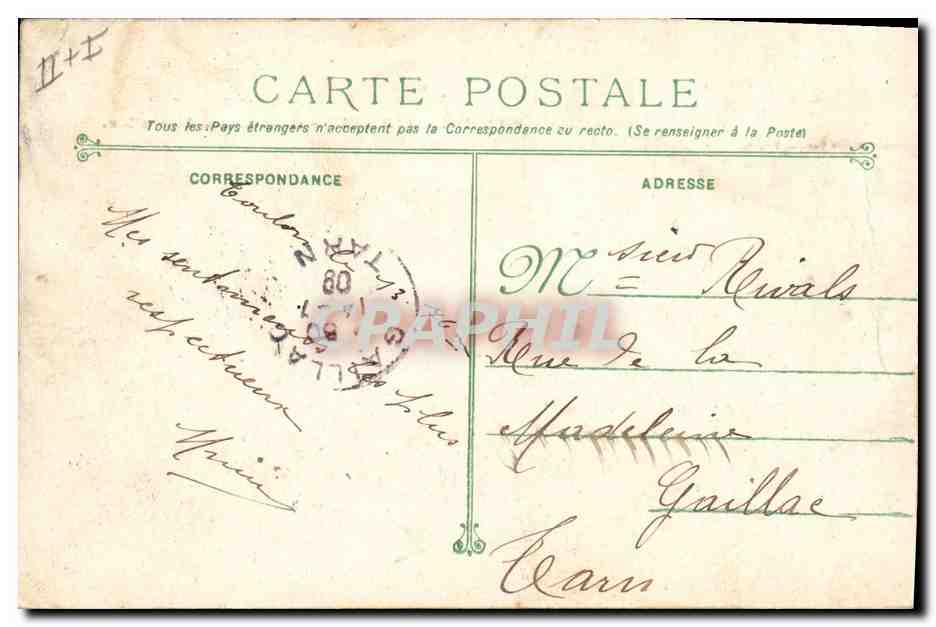 II+I
CARTE POSTALE
Tous les Pays étrangers n'acceptent pas la Correspondance au recto. (Se renseigner à la Poste)
CORRESPONDANCE
Toulon le 13
Mes sentiments les plus
respectueux
ADRESSE
Msieu Rivals
Rue de la
Madeleine
Gaillac
Tarn
GAILLAC
TARN
08
CPAPHIL